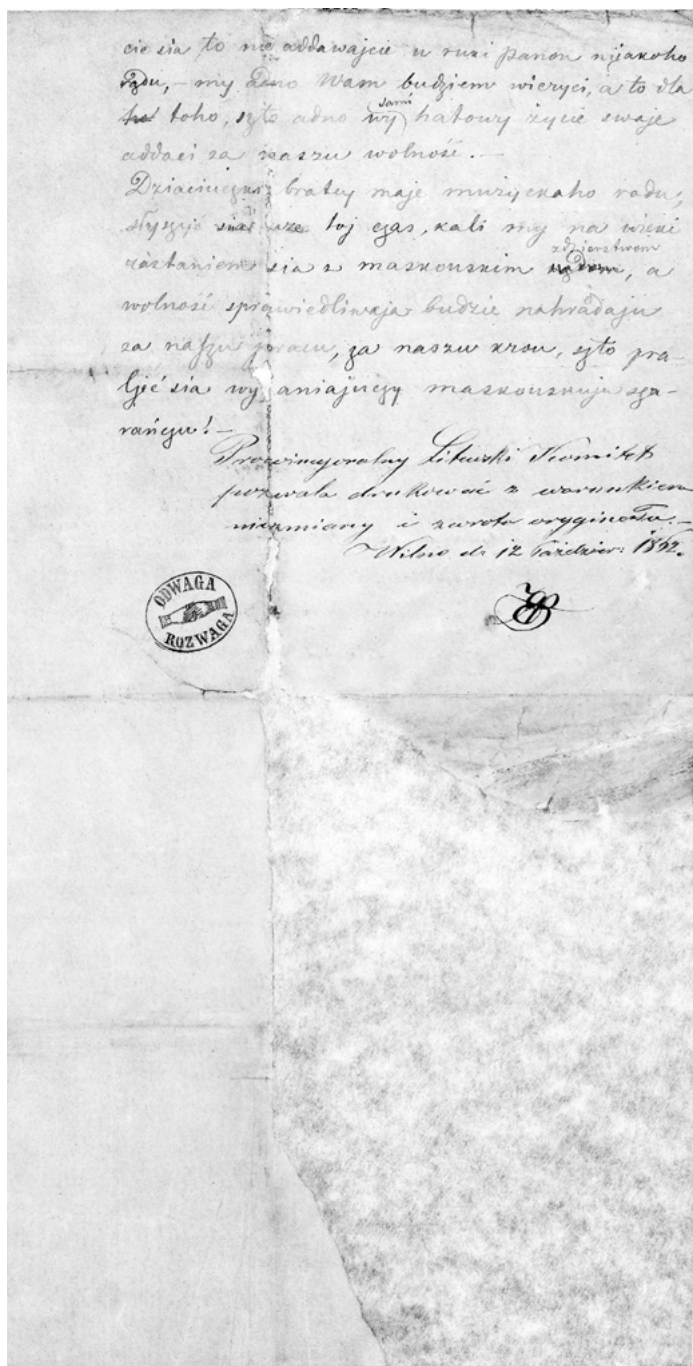 cie sia to nie addawajcie u ruki panou nijakoho
rądu, – my adno Wam budziem wieryci, a to dla
toho, szto adno sami wy hatowy życie swaje
addaci za naszu wolność. –
Dziaciuczki bratcy maje mużyckaho rodu,
toj czas, kali my na wieki
rastaniem sia z maskouskim zdzierstwem, a
wolność sprawiedliwaja budzie nahradaju
za naszu pracu, za naszu krou, szto pra-
ljeć sia wyhaniajuczy maskouskuju sza-
rańczu! –
Prowincyonalny Litewski Komitet
pozwala drukować z warunkiem
niezmiany i zwrotu oryginału. –
Wilno d. 12 Paździer: 1862.
ODWAGA
ROZWAGA